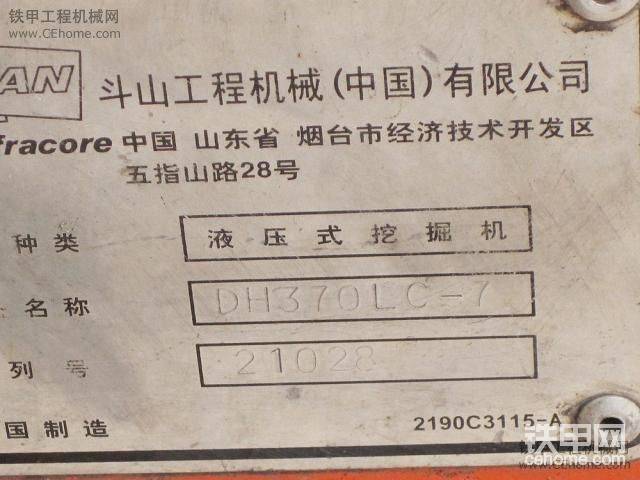 铁甲工程机械网
http://www.CEhome.com
AN 斗山工程机械(中国)有限公司
fracore 中国 山东省 烟台市经济技术开发区
五指山路28号
种类 液压式挖掘机
名称 DH370LC-7
列号 21028
国制造 2190C3115-A
铁甲网
cehome.com